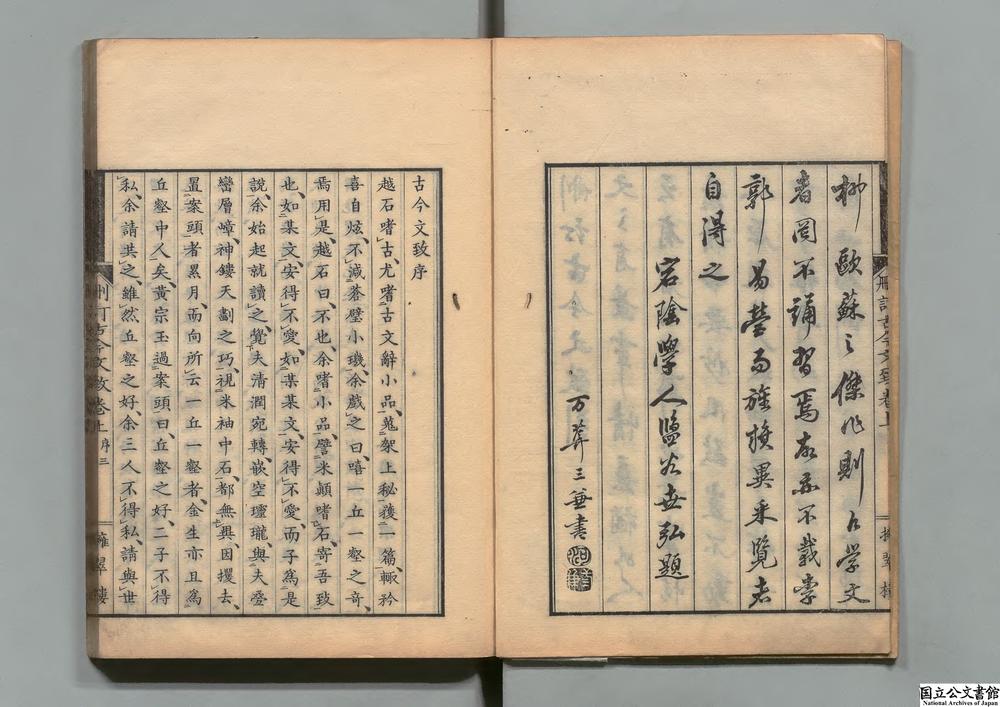 柳歐蘇之傑作則凡学文
者罔不誦習焉故亦不載李
郭一易営而旌旗異采覽者
自得之
宕陰學人鹽谷世弘題
万葊三兼書
刪訂古今文致卷上
擁翠樓
古今文致序
越石嗜古尤嗜古文辭小品蒐架上秘獲一篇輙矜
喜自炫不減蒼璧小璣余戲之曰嘻一丘一壑之奇
焉用是越石曰不也余嗜小品譬米顛嗜石寄吾致
也如某文安得不愛如某某文安得不愛而子為是
說余始起就讀之覺夫清潤宛轉嵌空瓏瓏與夫疊
巒層嶂神鏤天劃之巧視米袖中石都無異因攫去
置案頭者累月而向所云一丘一壑者余生亦且為
丘壑中人矣黃宗玉過案頭曰丘壑之好二子不得
私余請共之雖然丘壑之好余三人不得私請與世
刪訂古今文致卷上 序三
擁翠樓
国立公文書館
National Archives of Japan